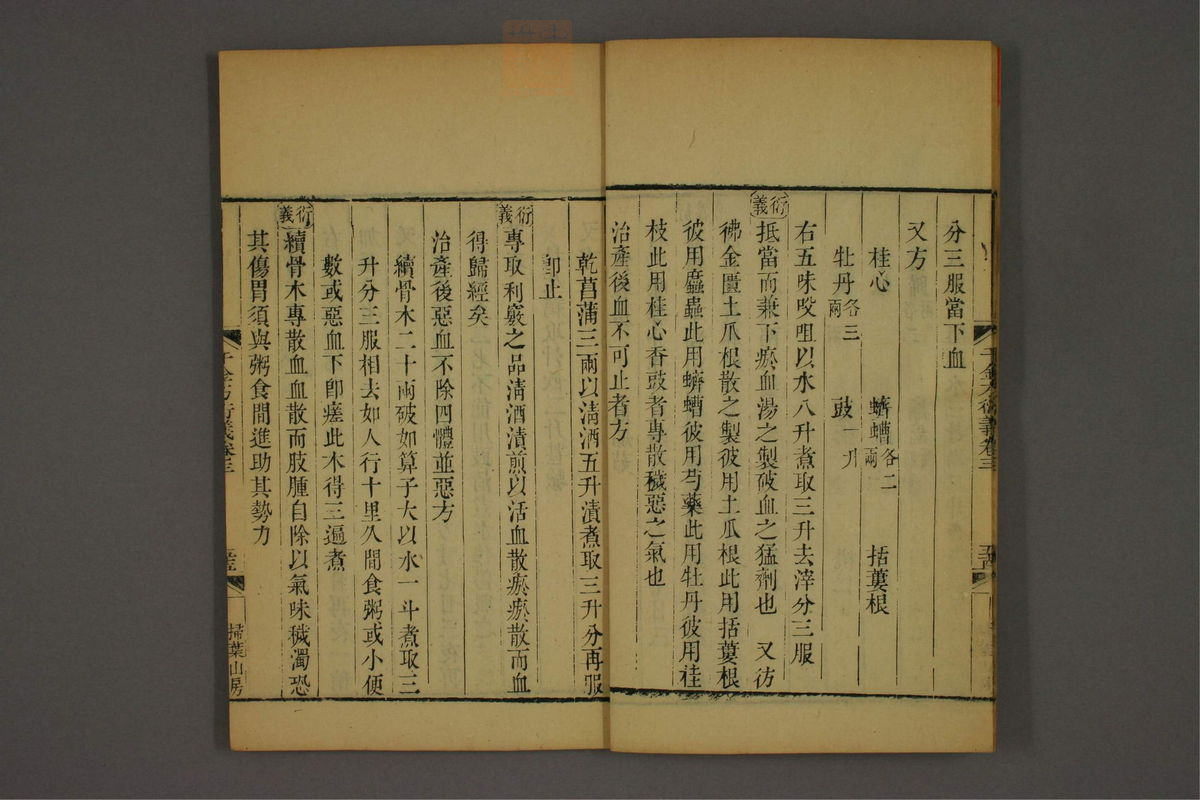 分三服當下血
又方
桂心 蠐螬各二兩 括蔞根
牡丹各三兩 豉一升
右五味㕮咀以水八升煮取三升去滓分三服
衍義 抵當而兼下瘀血湯之製破血之猛劑也 又彷
彿金匱土瓜根散之製彼用土瓜根此用括蔞根
彼用䗪蟲此用蠐螬彼用芍藥此用牡丹彼用桂
枝此用桂心香豉者專散穢惡之氣也
治產後血不可止者方
乾菖蒲三兩以淸酒五升漬煮取三升分再服
卽止
衍義 專取利竅之品淸酒漬煎以活血散瘀瘀散而血
得歸經矣
治產後惡血不除四體並惡方
續骨木二十兩破如算子大以水一斗煮取三
升分三服相去如人行十里久間食粥或小便
數或惡血下卽瘥此木得三遍煮
衍義 續骨木專散血血散而肢腫自除以氣味穢濁恐
其傷胃須與粥食間進助其勢力
千金方衍義卷三
掃葉山房